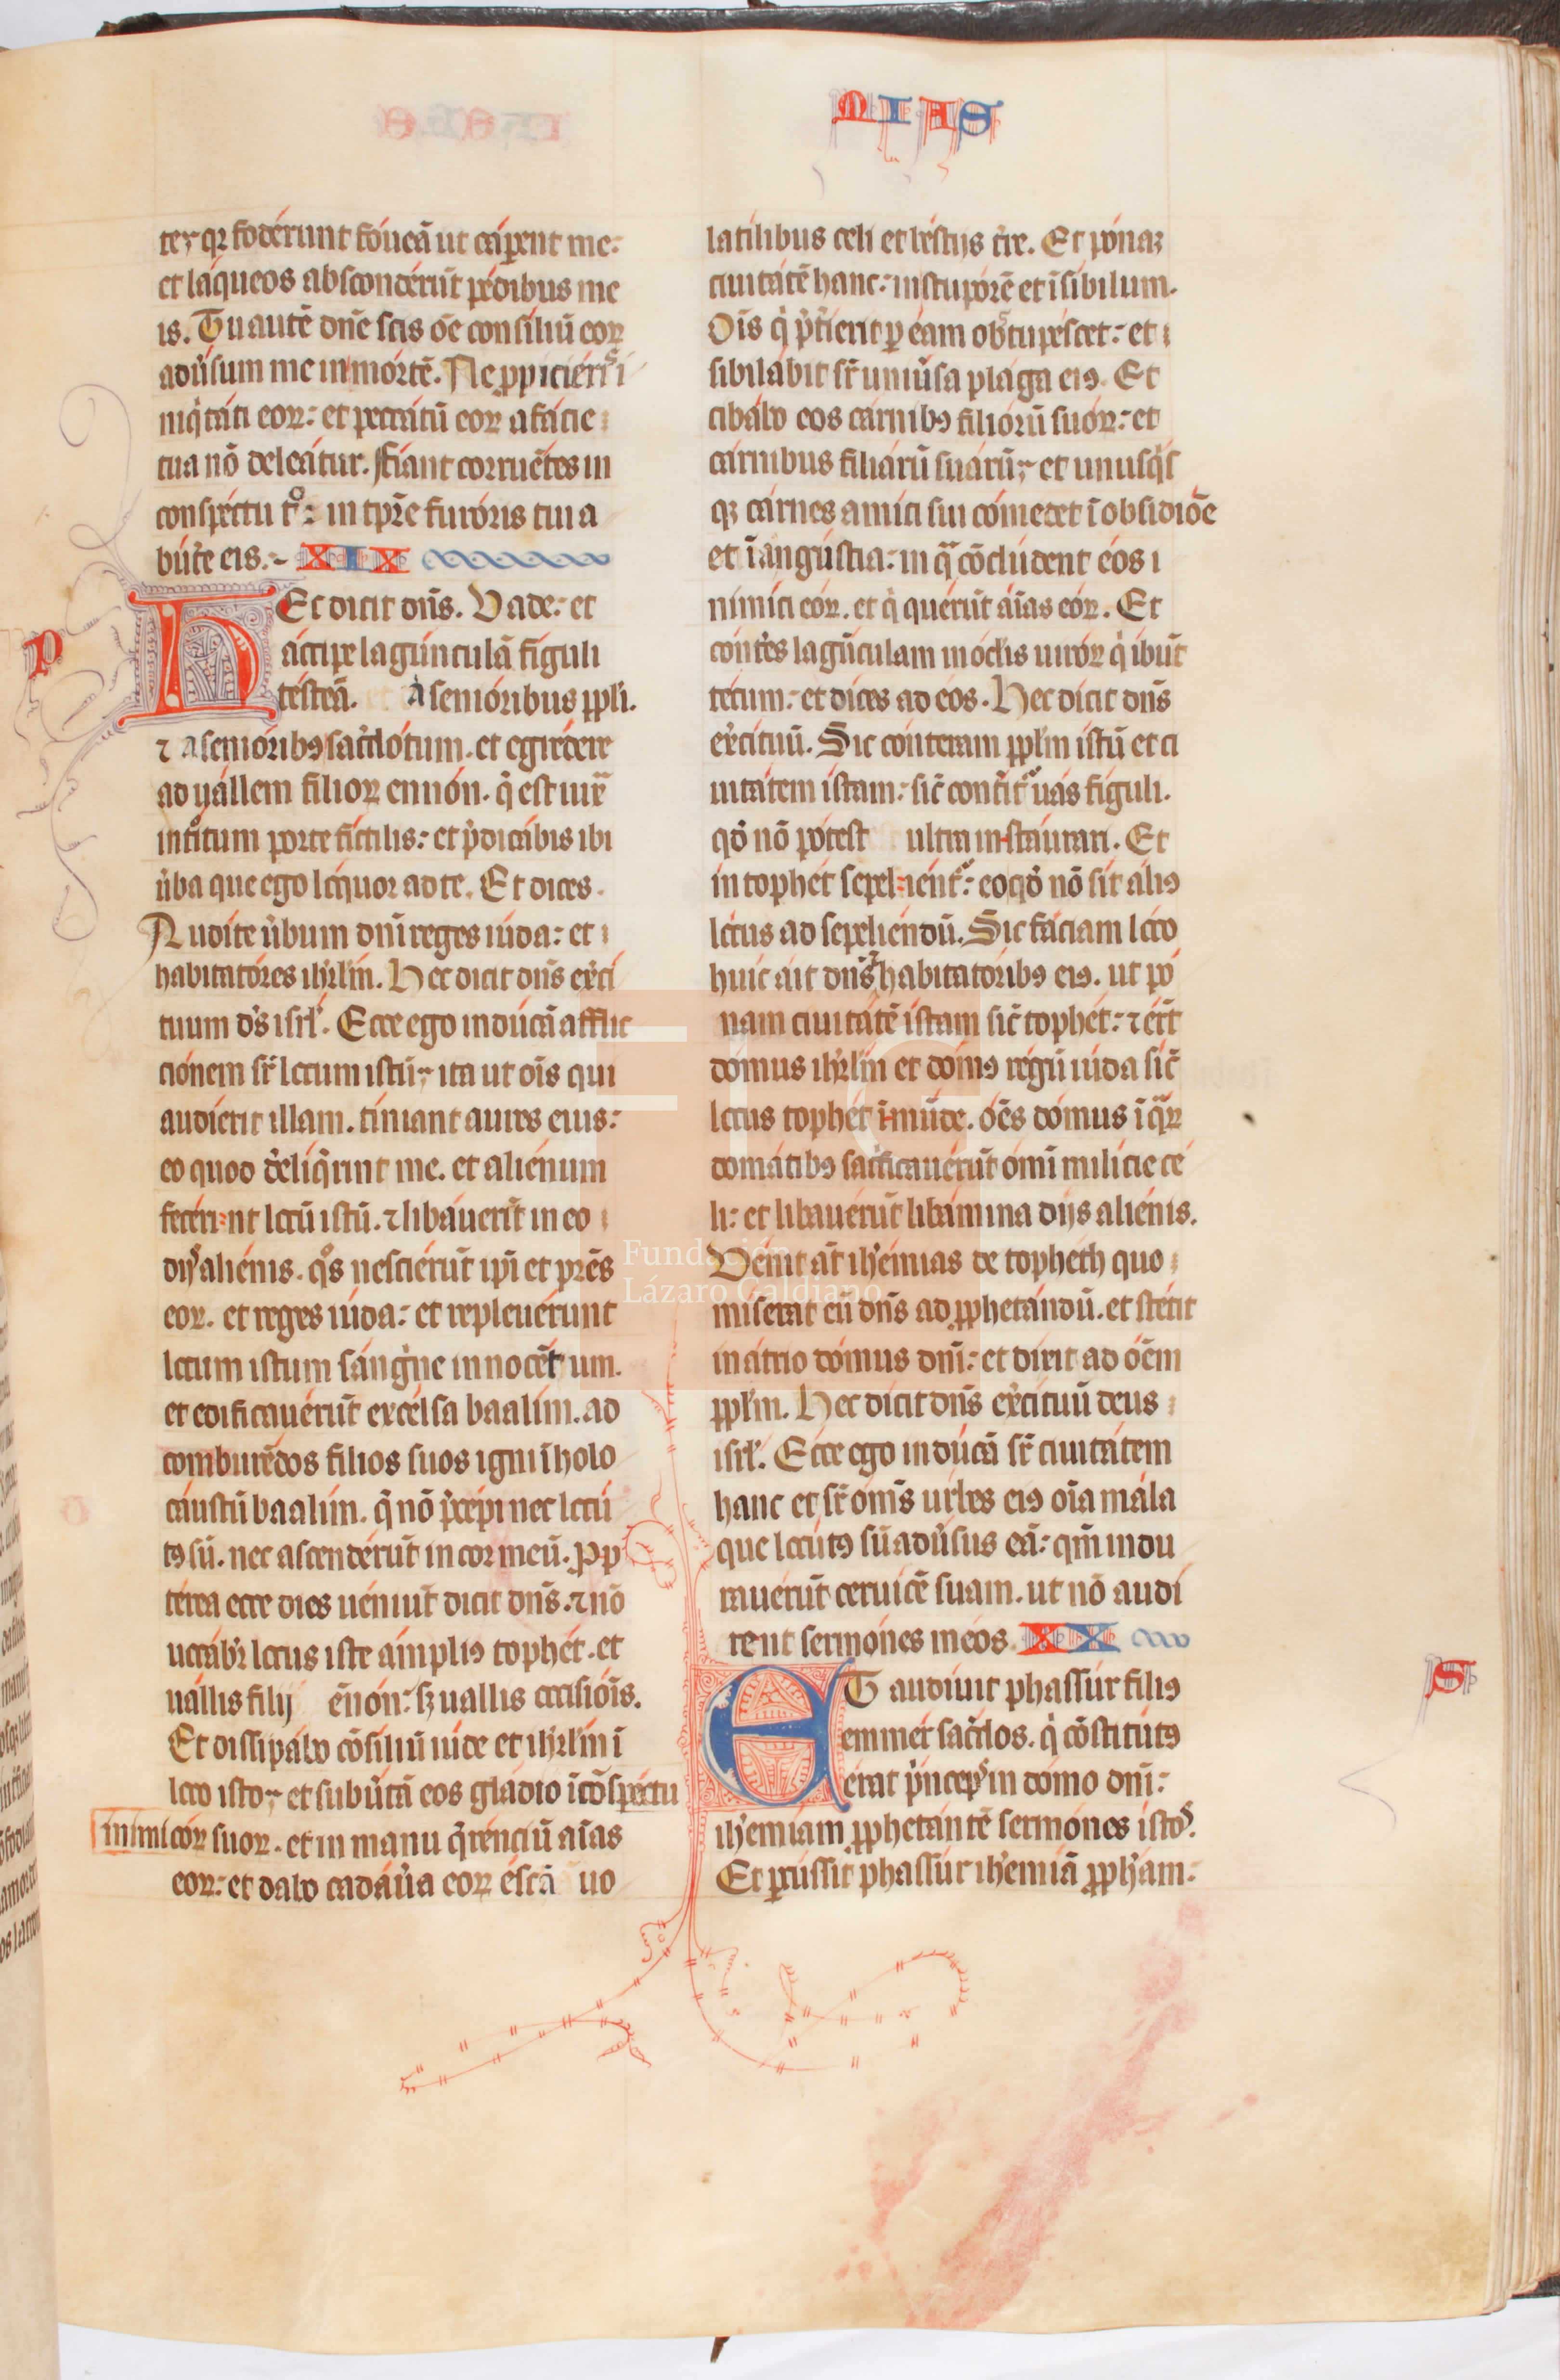 MIAS
ter qꝛ foderunt foueā ut caperent me:
et laqueos absconderūt pedibus me
is. Tu autē dn̄e scis oē consiliū eoꝝ
adūsum me in mortē. Ne ꝓpicieris i
niqͥtati eoꝝ: et peccatū eoꝝ a facie
tua nō deleatur. Fiant corruētes in
conspectu tº: in tꝑe furoris tui a
bute eis.~ XIX
P
Hec dicit dn̄s. Vade: et
accipe lagunculā figuli
testeā. A senioribus ppl̄i.
⁊ a senioribꝰ sac̄dotum. et egredere
ad uallem filioꝝ ennon. q̄ est iuxͣ
introitum porte fictilis: et p̄dicabis ibi
ūba que ego loquor ad te. Et dices.
Audite ūbum dn̄i reges iuda: et
habitatores ihrl̄m. Hec dicit dn̄s ex̄ci
tuum ds̄ isrl̄. Ecce ego inducā afflic
cionem sr̄ locum istū ita ut oīs qui
audierit illam. tiniant aures eius:
eo quod deliq̄rint me. et alienum
fecerint locū istū. ⁊ libauerūt in eo
dijs alienis. qͦs nescierūt ip̄i et pr̄es
eoꝝ. et reges iuda: et repleuerunt
locum istum sangͥne innocētum.
et edificauerūt excelsa baalim. ad
comburēdos filios suos igni ī holo
caustū baalim. q̄ nō p̄cepi nec locū
tꝰ sū. nec ascenderūt in cor meū. Ꝓp
terea ecce dies ueniūt dicit dn̄s. ⁊ nō
uocabr̄ locus iste ampliꝰ tophet. et
uallis filij ēnon: sꝫ uallis occisiōis.
Et dissipabo cōsiliū iude et ihrl̄m ī
loco isto et subuertā eos gladio ī cōspectu
inimicoꝝ suoꝝ. et in manu q̄renciū aīas
eoꝝ: et dabo cadaūa eoꝝ escā uo
latilibus celi et bestijs tr̄e. Et ponaꝫ
ciuitatē hanc: in stuporē et ī sibilum.
Oīs qͥ p̄terierit ꝑ eam obstupescet: et
sibilabit sr̄ uniūsa plaga eiꝰ. Et
cibabo eos carnibꝰ filiorū suoꝝ: et
carnibus filiarū suarū et unusqͥs
qꝫ carnes amici sui comedet ī obsidiōe
et ī angustia: in qͣ cōcludent eos i
nimici eoꝝ. et qͥ querūt aīas eoꝝ. Et
conteres lagūculam in oculis uiroꝝ qͥ ibūt
tecum: et dices ad eos. Hec dicit dn̄s
ex̄cituū. Sic conteram ppl̄m istū et ci
uitatem istam: sic̄ conterit̄ uas figuli.
qd̄ nō potest ultra instaurari. Et
in tophet sepelient̄: eo qd̄ nō sit aliꝰ
locus ad sepeliendū. Sic faciam loco
huic ait dn̄s ⁊ habitatoribꝰ eiꝰ. ut po
nam ciuitatē istam sic̄ tophet: ⁊ erūt
domus ihrl̄m et domꝰ regū iuda sic̄
locus tophet īmūde. oēs domus ī qͥꝝ
domatibꝰ sac̄ficauerūt omī milicie ce
li: et libauerūt libamina dijs alienis.
Venit aūt ih̄emias de topheth quo
miserat eū dn̄s ad ꝓphetandū. et stetit
in atrio domus dn̄i: et dixit ad oēm
ppl̄m. Hec dicit dn̄s ex̄cituū deus
isrl̄. Ecce ego inducā sr̄ ciuitatem
hanc et sr̄ omīs urbes eiꝰ oīa mala
que locutꝰ sū adūsus eā: qm̄ indu
rauerūt ceruicē suam. ut nō audi
rent sermones meos. XX
S
ET audiuit phassur filiꝰ
emmer sac̄dos. qͥ cōstitutꝰ
erat p̄nceps in domo dn̄i:
ih̄emiam ꝓphetantē sermones istos.
Et ꝑcussit phassur ih̄emiā ꝓpham:
Fundación
Lázaro Galdiano